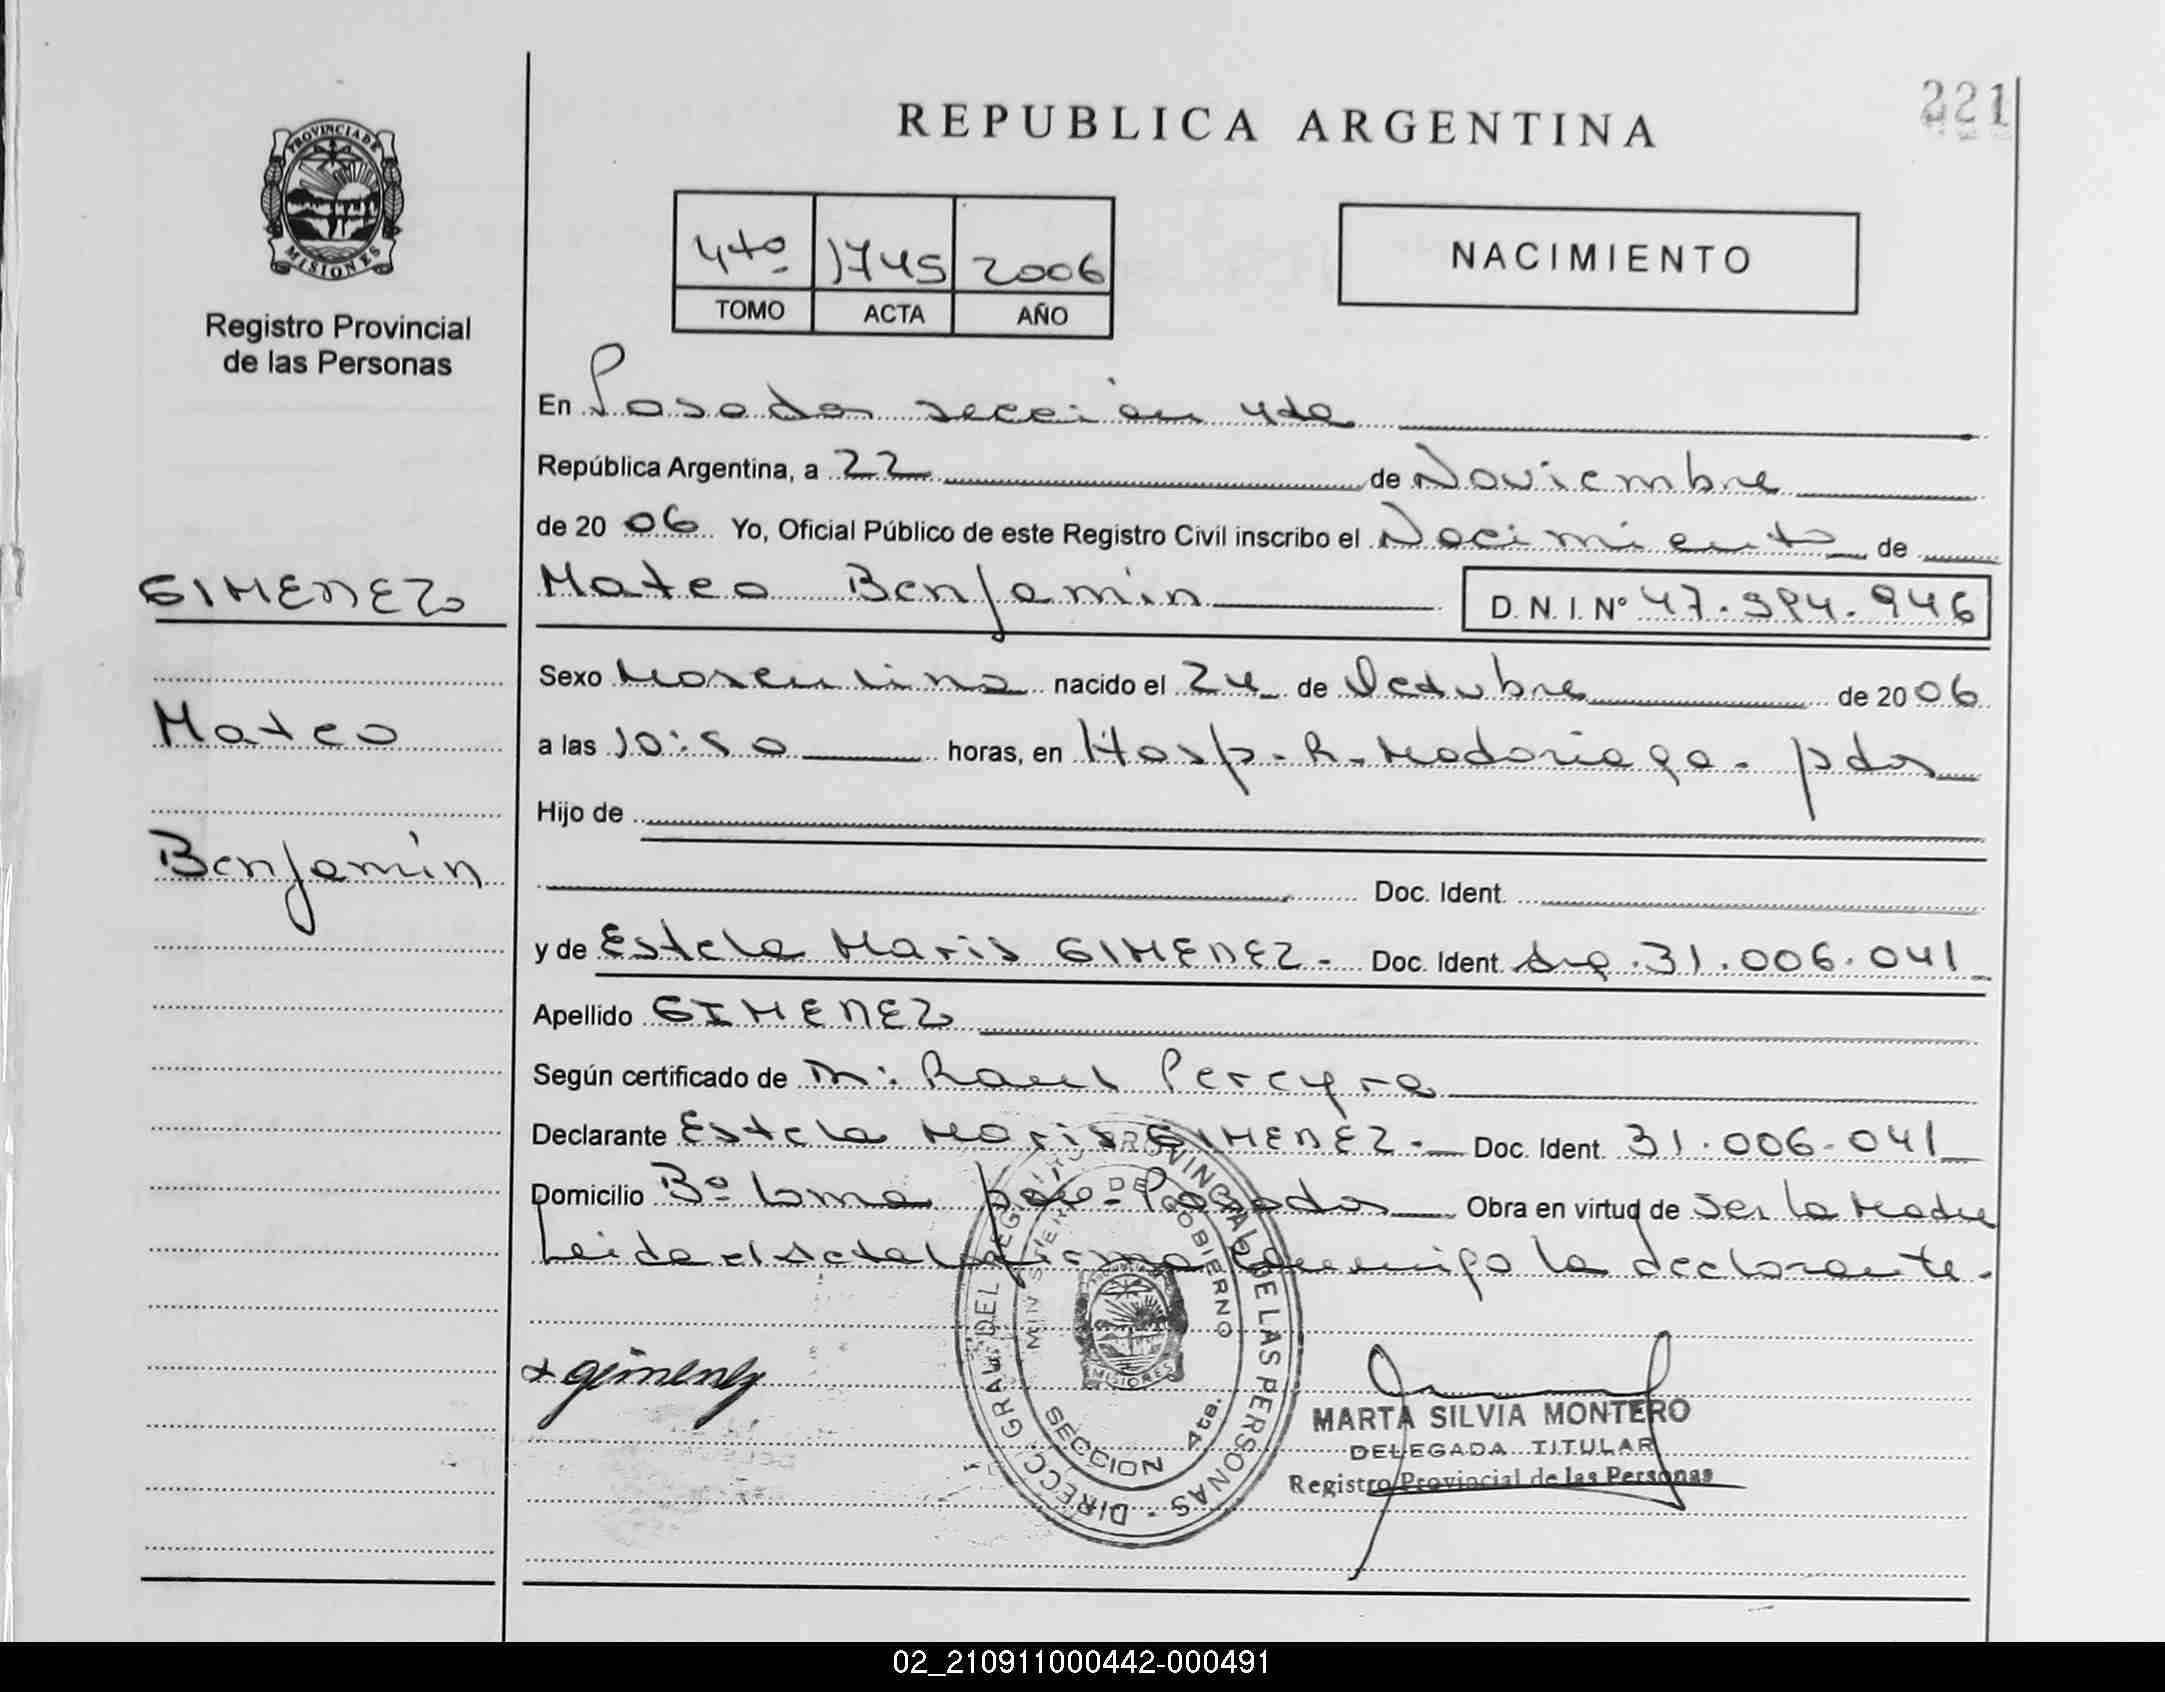 221
REPUBLICA ARGENTINA
PROVINCIA DE
MISIONES
Registro Provincial
de las Personas
4to 1745 2006
TOMO ACTA AÑO
NACIMIENTO
En Posadas sección 4ta
República Argentina, a 22 de Noviembre
de 20 06 Yo, Oficial Público de este Registro Civil inscribo el Nacimiento de
GIMENEZ
Mateo Benjamín D.N.I.Nº 47.594.946
Sexo Masculino nacido el 24 de Octubre de 20 06
Mateo
a las 10:50 horas, en Hosp. R. Madariaga. pdas
Hijo de
Benjamín
Doc. Ident.
y de Estela Maris GIMENEZ - Doc. Ident. 31.006.041
Apellido GIMENEZ
Según certificado de Raul Pereyra
Declarante Estela Maris GIMENEZ - Doc. Ident. 31.006.041
Domicilio Bº Loma Posadas Obra en virtud de ser la Madre
Leída el Acta la firma conmigo la declarante.
x gimenez
DIRECC. GRAL. DEL REGISTRO PROVINCIAL DE LAS PERSONAS -
MINISTERIO DE GOBIERNO
MISIONES
SECCION 4ta.
MARTA SILVIA MONTERO
DELEGADA TITULAR
Registro Provincial de las Personas
02_210911000442-000491